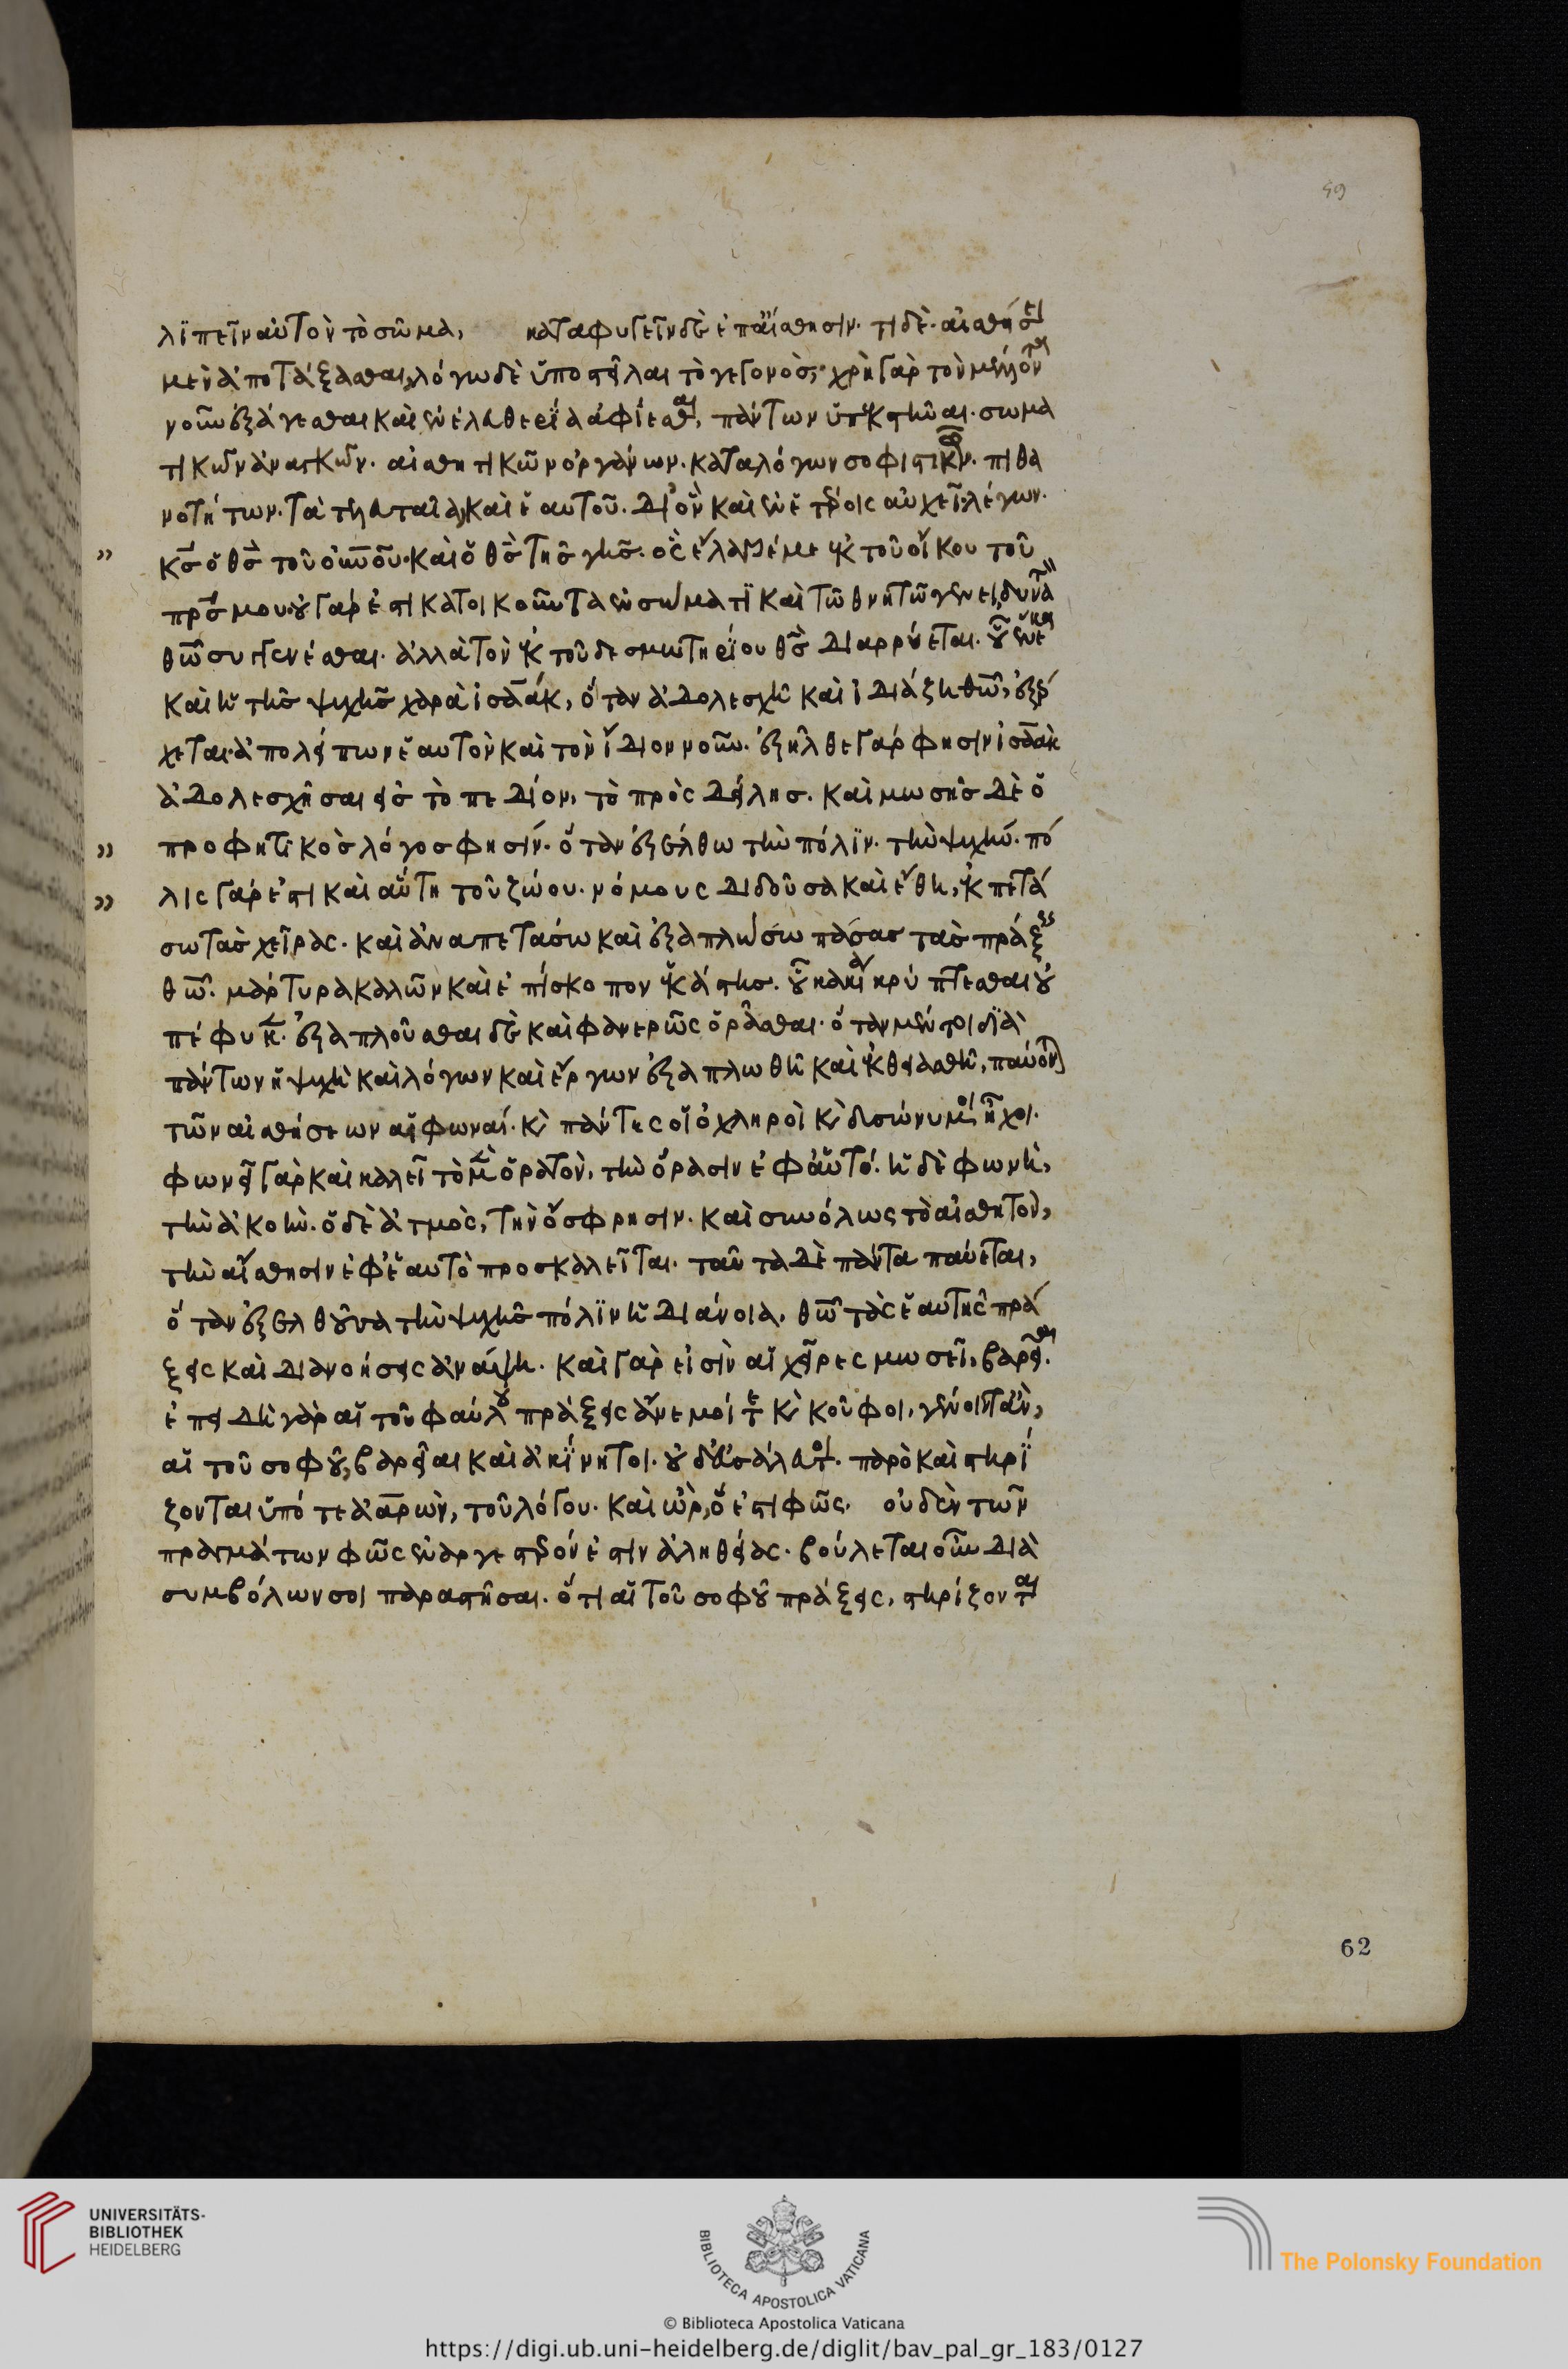 59
λϊπεῖν αὐτὸν τὸ σῶμα, καταφυγεῖν δὲ ἐπ' αἴσθησιν. τί δέ. αἰσθήσει
μὲν ἀποτάξασθαι, λόγω δὲ ὑποστεῖλαι τὸ γεγονὸς; χρὴ γὰρ τὸν μέλλοντα
νοῦν ἐξάγεσθαι καὶ ἐν ἐλευθερία ἀφίεσθαι, πάντων ὑπεκστῆναι. σωμα
τικῶν ἀναγκῶν. αἰσθητικῶν ὀργάνων. κατα λόγων σοφιστικῶν. πιθα
νοτήτων. τὰ τελευταῖα, καὶ ἑαυτοῦ. Διὸ καὶ ἐν ἑτέροις αὐχεῖ λέγων.
κς ὁ θς τοῦ οὐνοῦ. καὶ ὁ θς τῆς γῆς. ὃς ἔλαβέ με ἐκ τοῦ οἴκου τοῦ
πρς μου. οὐ γάρ ἐστι κατοικοῦντα ἐν σώματι καὶ τῶ θνητῶ γένει, δυνατὸν
θῶ συγγενέσθαι. ἀλλὰ τὸν ἐκ τοῦ δεσμωτηρίου θς διαρρύεται. οὗ ἕνεκα
καὶ ἡ τῆς ψυχῆς χαρὰ ἰσαάκ, ὅταν ἀδολεσχῆ καὶ ἰδιάζη θῶ, ἐξέρ
χεται. ἀπολείπων ἑαυτὸν καὶ τὸν ἴδιον νοῦν. ἐξῆλθε γάρ φησιν ἰσαὰκ
ἀδολεσχῆσαι εἰς τὸ πεδίον, τὸ πρὸς δείλης. καὶ μωσῆς δὲ ὁ
προφητικὸς λόγος φησίν. ὅταν ἐξέλθω τὴν πόλϊν. τὴν ψυχήν. πό
λις γάρ ἐστι καὶ αὕτη τοῦ ζώου. νόμους διδοῦσα καὶ ἔθη, ἐκπετά
σω τὰς χεῖρας. καὶ ἀναπετάσω καὶ ἐξαπλώσω πάσας τὰς πράξεις
θῶ. μάρτυρα καλῶν καὶ ἐπίσκοπον ἑκάστης. ὃν κακία κρύπτεσθαι οὐ
πέφυκεν. ἐξαπλοῦσθαι δὲ καὶ φανερῶς ὁρᾶσθαι. ὅταν μέντοι διὰ
πάντων ἡ ψυχὴ καὶ λόγων καὶ ἔργων ἐξαπλωθῆ καὶ ἐκθειασθῆ, παύονται
τῶν αἰσθήσεων αἱ φωναί. κὶ πάντες οἱ ὀχληροὶ κὶ δυσώνυμοι ἦχοι.
φωνεῖ γὰρ καὶ καλεῖ τὸ μὲν ὁρατὸν, τὴν ὅρασιν ἐφ' ἑαυτό. ἡ δὲ φωνὴ,
τὴν ἀκοήν. ὁ δὲ ἀτμὸς, τὴν ὄσφρησιν. καὶ συνόλως τὸ αἰσθητὸν,
τὴν αἴσθησιν ἐφ' ἑαυτὸ προσκαλεῖται. ταῦτα δὲ πάντα παύεται,
ὅταν ἐξελθοῦσα τὴν ψυχῆς πόλϊν ἡ διάνοια. θῶ τὰς ἑαυτῆς πρά
ξεις καὶ διανοήσεις ἀνάψη. καὶ γὰρ εἰσὶν αἱ χεῖρες μωσεῖ, βαρεῖαι.
ἐπειδὴ γὰρ αἱ τοῦ φαύλου πράξεις ἀνεμοί τε κὶ κοῦφοι, γένοιντ' ἂν,
αἱ τοῦ σοφοῦ, βαρεῖαι καὶ ἀκίνητοι. οὐδ' εὐσάλευτοι. παρὸ καὶ στηρί
ζονται ὑπό τε ἀαρὼν, τοῦ λόγου. καὶ ὢρ, ὅ ἐστι φῶς. οὐδὲν τῶν
πραγμάτων φῶς ἐναργέστερόν ἐστιν ἀληθείας. βούλεται οὖν διὰ
συμβόλων σοι παραστῆσαι. ὅτι αἱ τοῦ σοφοῦ πράξεις, στηρίζονται
62
UNIVERSITÄTS-
BIBLIOTHEK
HEIDELBERG
BIBLIOTECA APOSTOLICA VATICANA
The Polonsky Foundation
© Biblioteca Apostolica Vaticana
https://digi.ub.uni-heidelberg.de/diglit/bav_pal_gr_183/0127